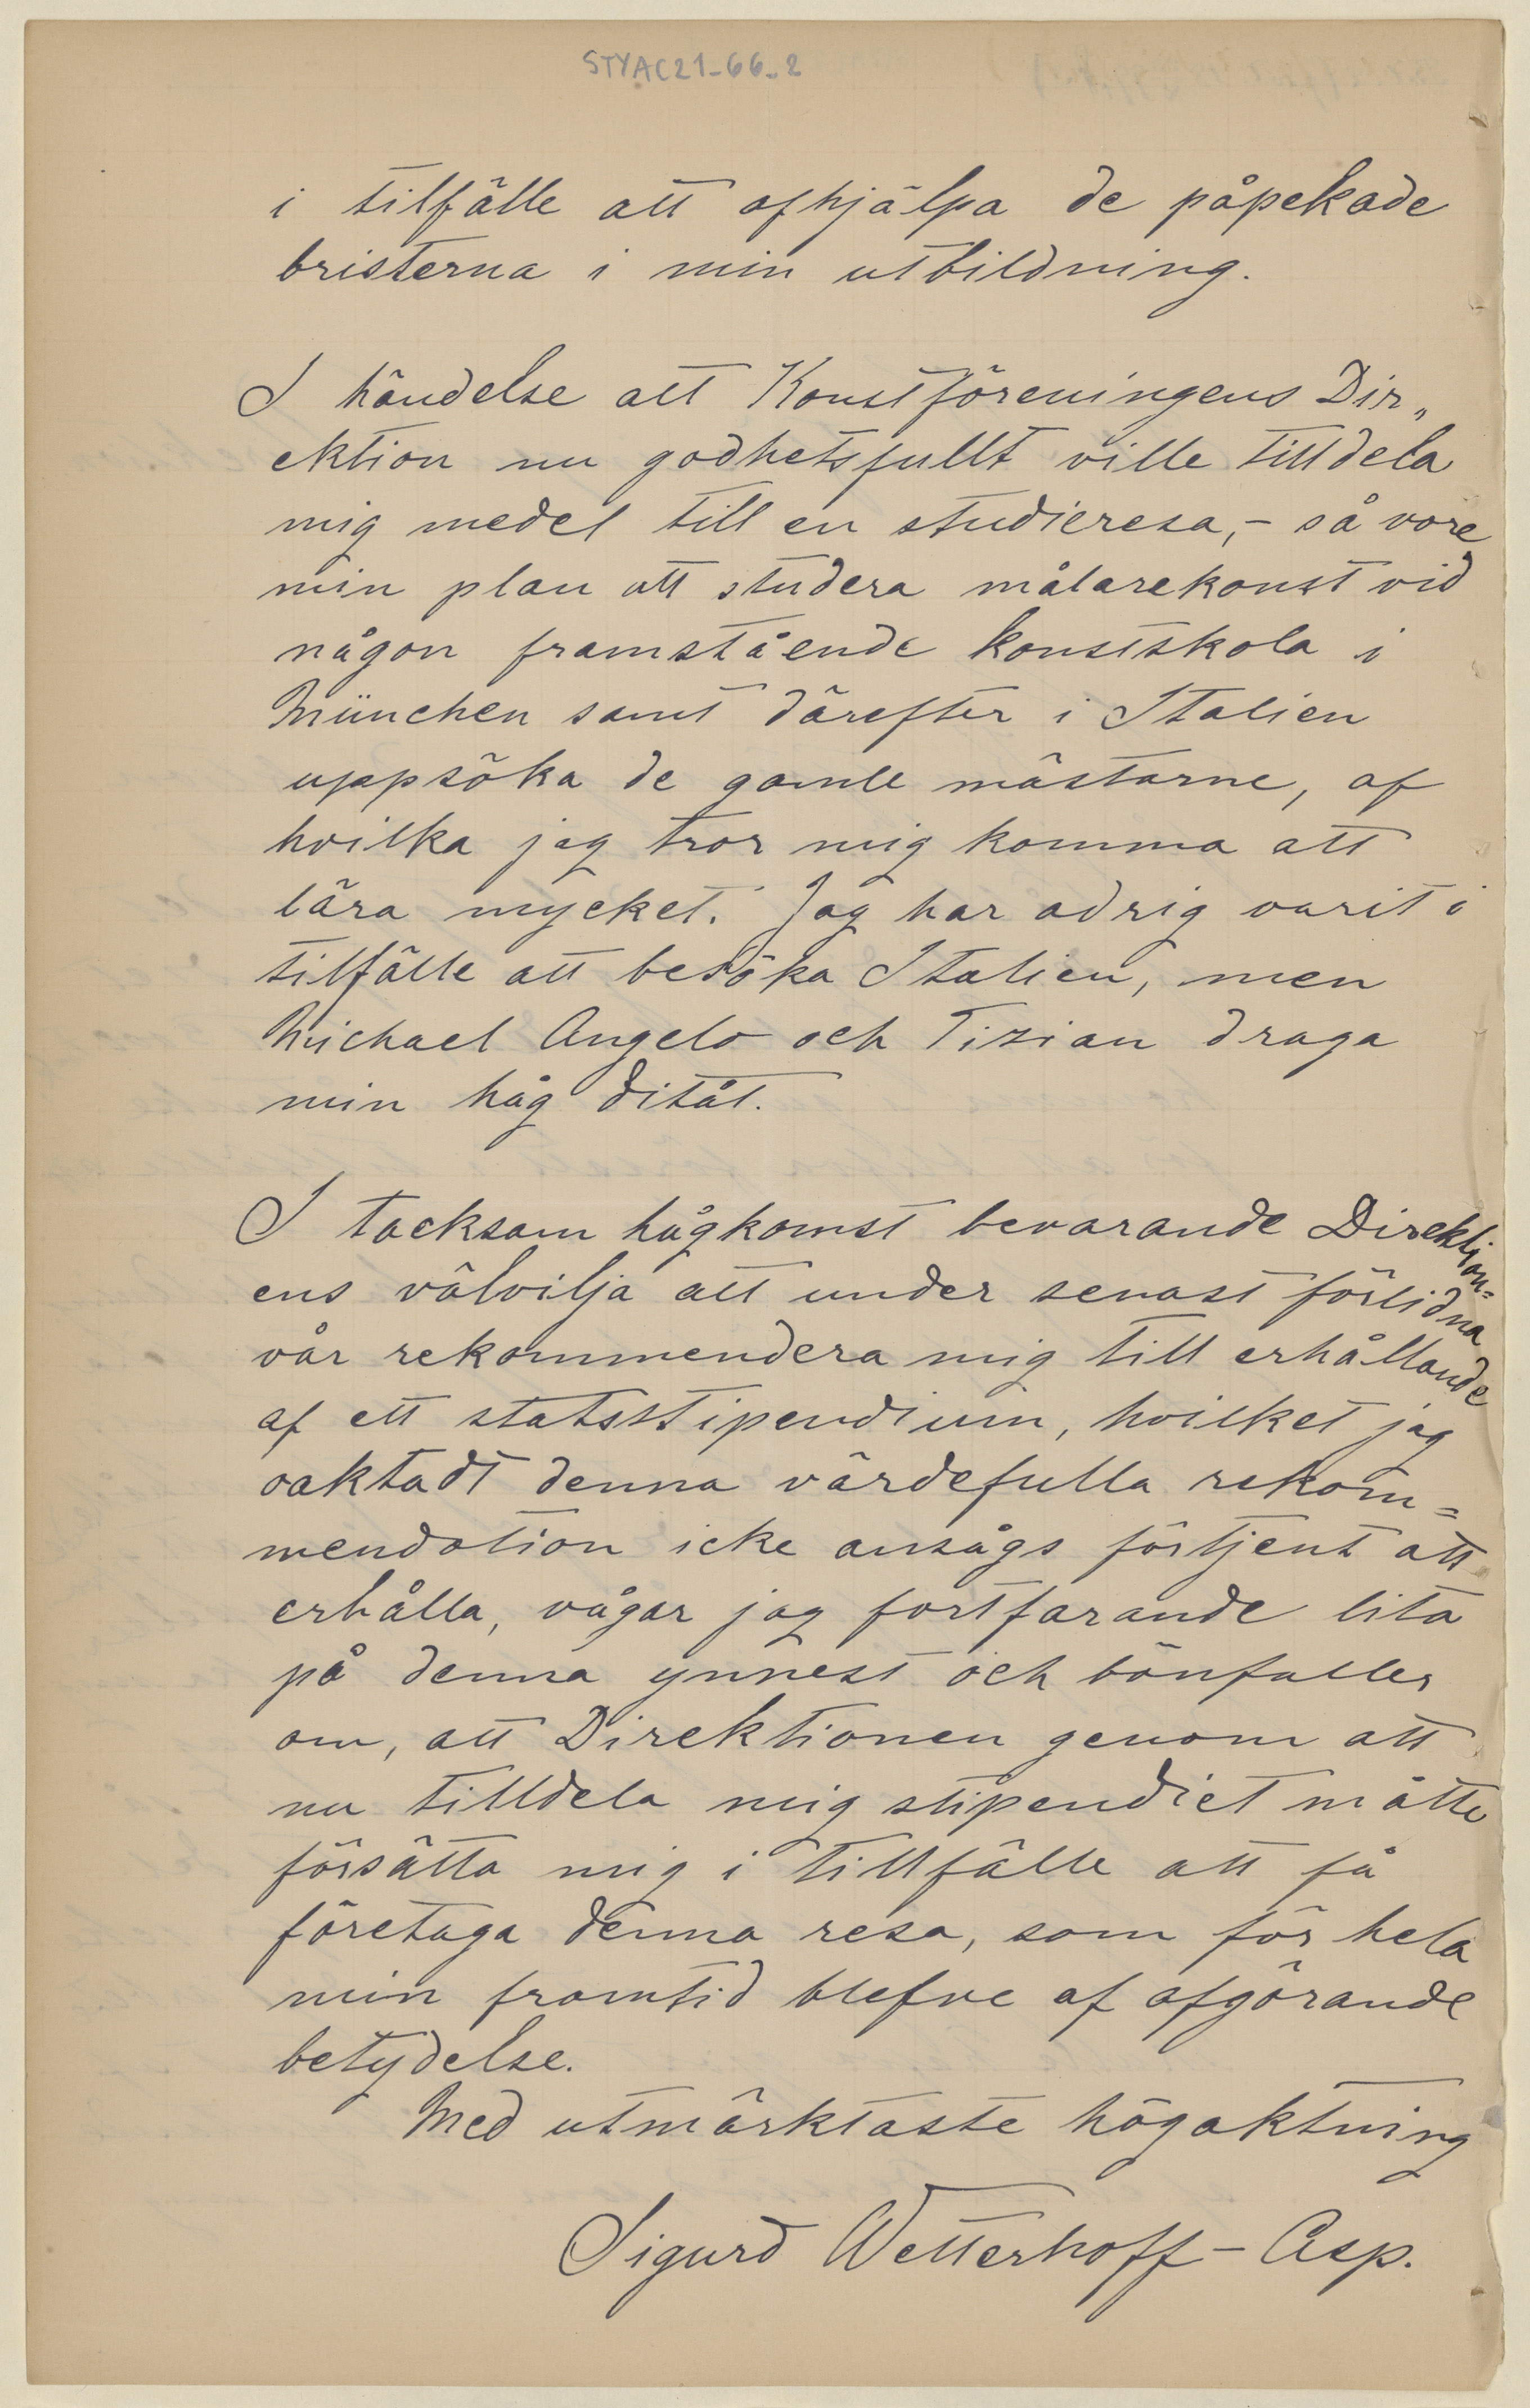 STYAC21-66-2
i tilfälle att afhjälpa de påpekade
bristerna i min utbildning.
I händelse att Konstföreningens Dir„
ektion nu godhetsfullt ville tilldela
mig medel till en studieresa,- så vore
min plan att studera målarekonst vid
någon framstående konstskola i
München samt därefter i Italien
uppsöka de gamle mästarne, af
hvilka jag tror mig komma att
lära mycket. Jag har adrig varit i
tilfälle att besöka Italien, men
Michael Angelo och Tizian draga
min håg ditåt.
I tacksam hågkomst bevarande Direktion=
ens välvilja att under senast förlidna
vår rekommendera mig till erhållande
af ett statsstipendium, hvilket jag
oaktadt denna värdefulla rekom=
mendation icke ansågs förtjent att
erhålla, vågar jag fortfarande lita
på denna ynnest och bönfaller
om, att Direktionen genom att
nu tilldela mig stipendiet måtte
försätta mig i tillfälle att få
företaga denna resa, som för hela
min framtid blefve af afgörande
betydelse.
Med utmärktaste högaktning
Sigurd Wetterhoff-Asp.